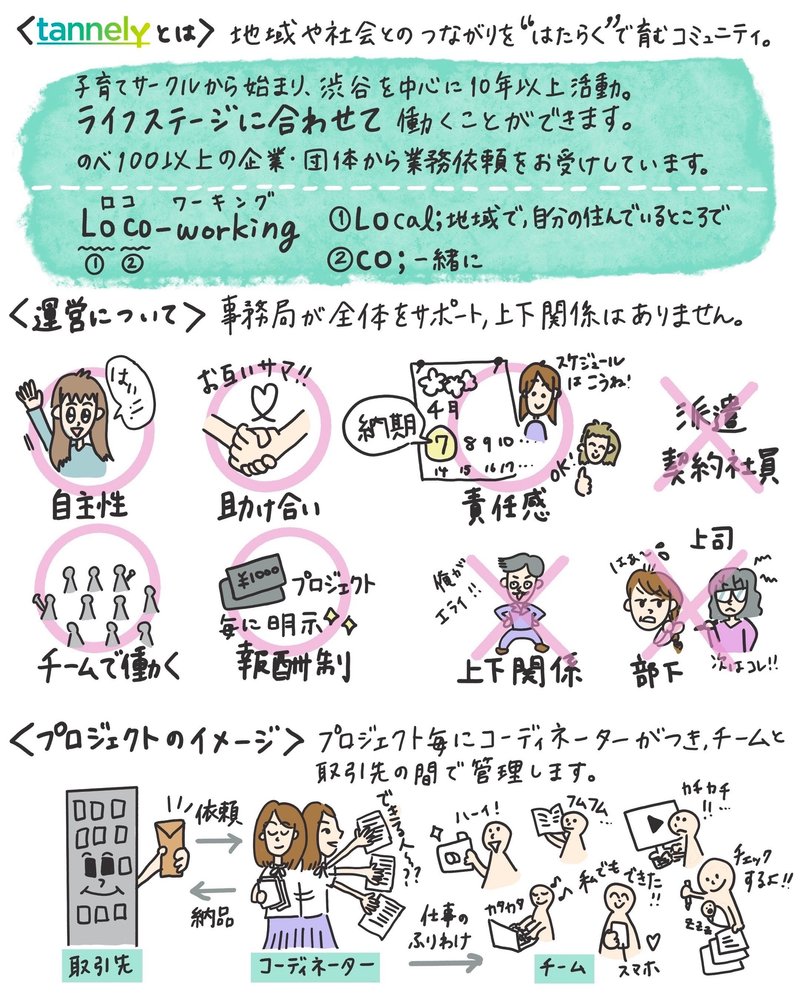 <tannelyとは> 地域や社会とのつながりを“はたらく”で育むコミュニティ。
子育てサークルから始まり、渋谷を中心に10年以上活動。
ライフステージに合わせて 働くことができます。
のべ100以上の企業・団体から業務依頼をお受けしています。
ロコ ワーキング
Loco-working
① ②
①Local;地域で,自分の住んでいるところで
②co;一緒に
<運営について> 事務局が全体をサポート,上下関係はありません。
はい
自主性
お互いサマ!!
助け合い
スケジュール
はこうね!
4月
納期
7 8 9 10...
14 15 16 17...
OK!
責任感
派遣
契約社員
チームで働く
¥1000
プロジェクト
毎に明示
報酬制
俺が
エライ!!
上下関係
上司
はぁ〜
部下
次はコレ!!
<プロジェクトのイメージ> プロジェクト毎にコーディネーターがつき,チームと
取引先の間で管理します。
依頼
納品
取引先
できる人〜??
コーディネーター
仕事の
ふりわけ
ハーイ!
フムフム...
カチカチ
!!
カタカタ
私でも
できた!!
スマホ
チェック
するよ!!
zzz
チーム